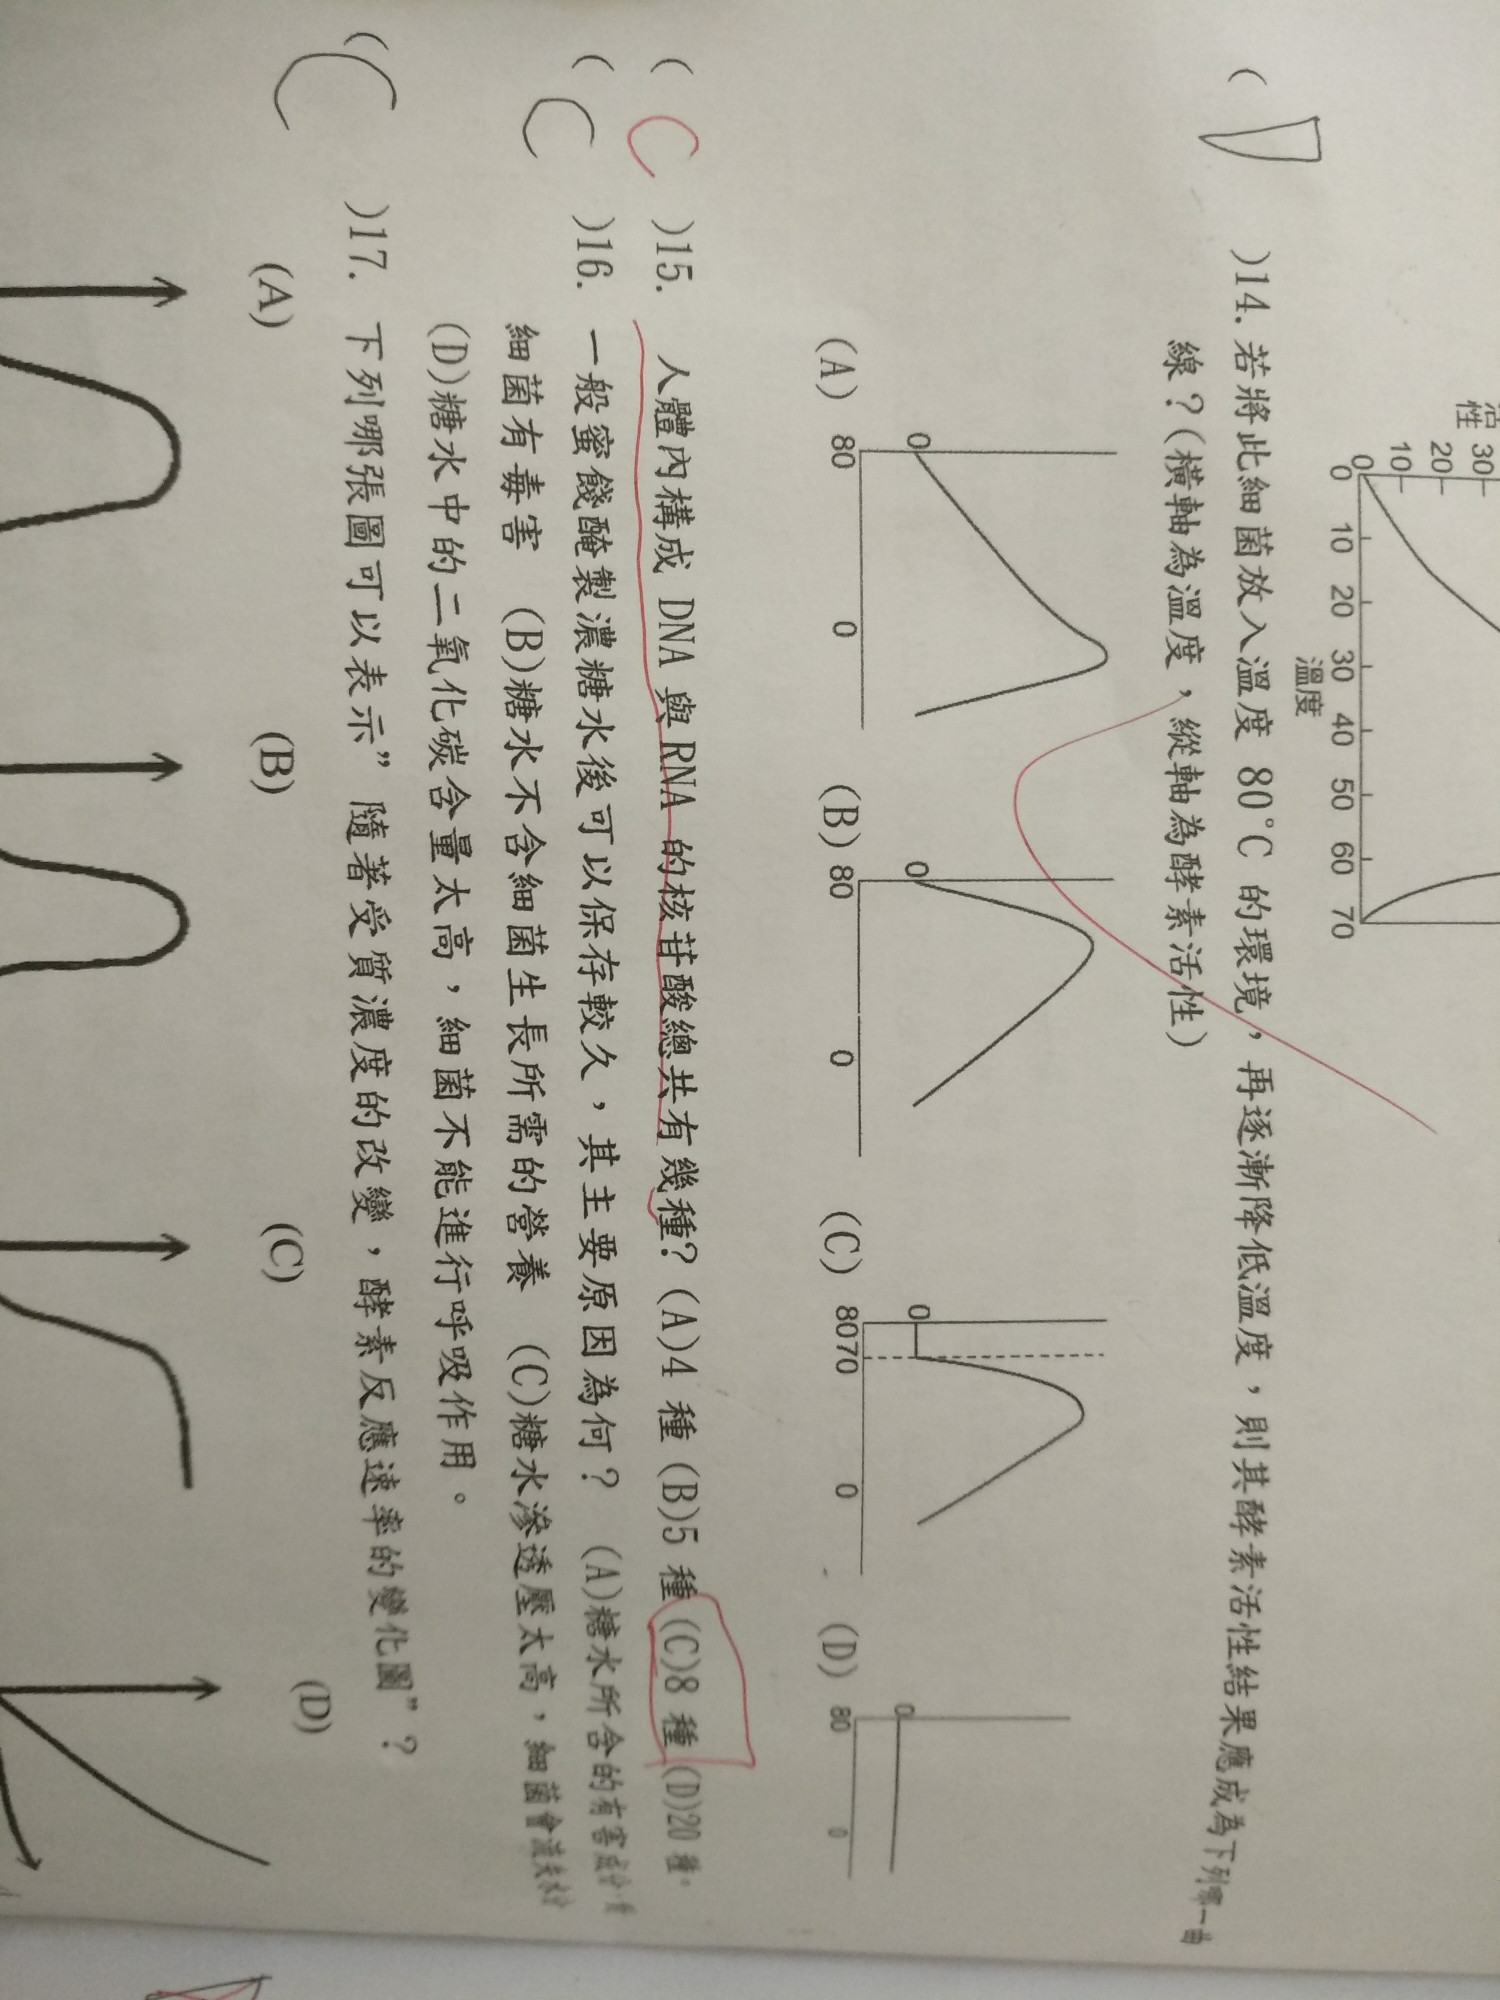 活性
30
20
10
0
0 10 20 30 40 50 60 70
溫度
( D )14. 若將此細菌放入溫度 80°C 的環境，再逐漸降低溫度，則其酵素活性結果應成為下列哪一曲
線？(橫軸為溫度，縱軸為酵素活性)
(A) (B) (C) (D)
0 0 0 0
80 0 80 0 8070 0 80 0
( C )15. 人體內構成 DNA 與 RNA 的核苷酸總共有幾種? (A)4 種 (B)5 種 (C)8 種 (D)20 種。
( C )16. 一般蜜餞醃製濃糖水後可以保存較久，其主要原因為何? (A)糖水所含的有害成份
細菌有毒害 (B)糖水不含細菌生長所需的營養 (C)糖水滲透壓太高，細菌會流失水
(D)糖水中的二氧化碳含量太高，細菌不能進行呼吸作用。
( C )17. 下列哪張圖可以表示” 隨著受質濃度的改變，酵素反應速率的變化圖” ？
(A) (B) (C) (D)